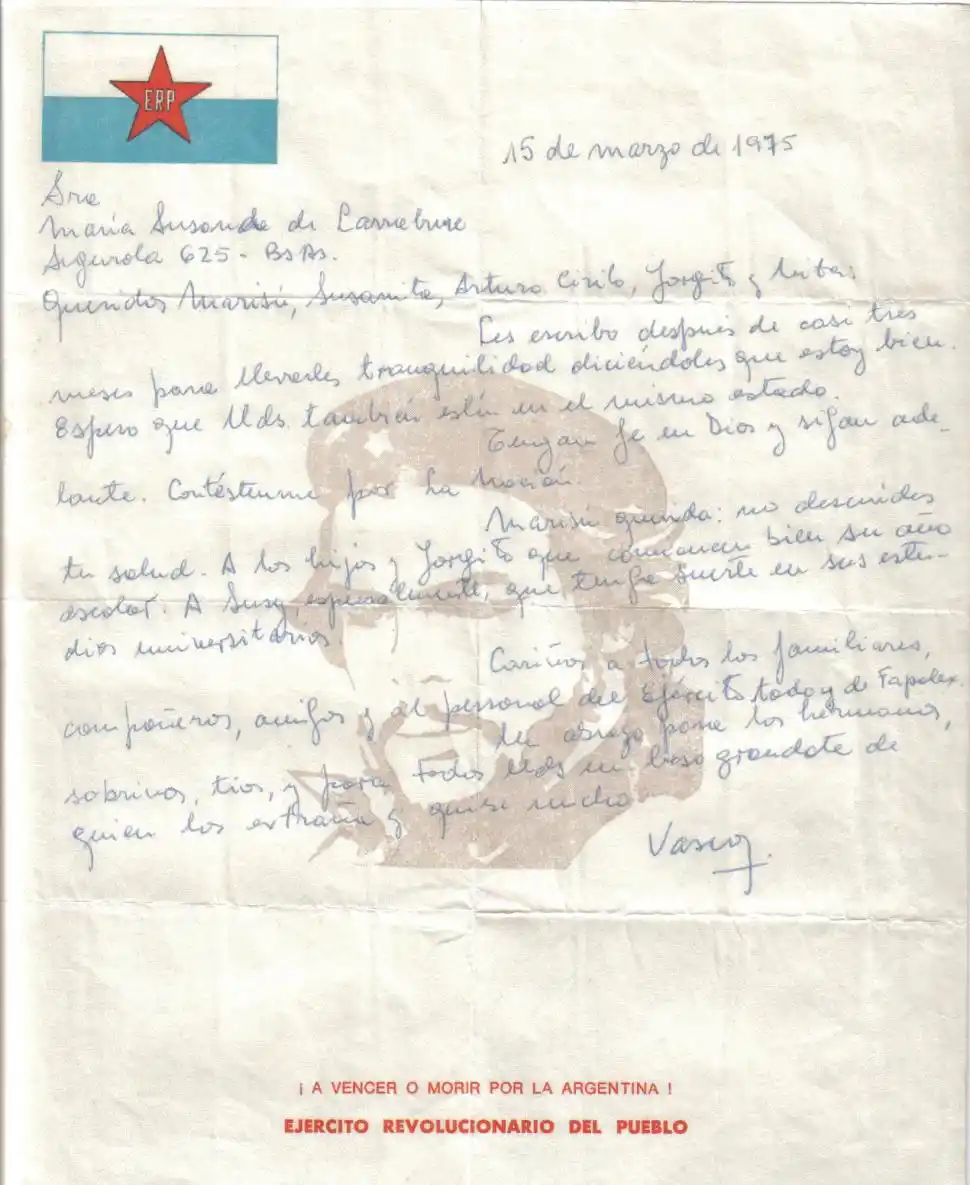 ERP
15 de marzo de 1975
Sra
María Susana de Larrabure
Segurola 625 - Bs As.
Queridos Marisú, Susanita, Arturo Cirilo, Jorgito y
Les escribo después de casi tres
meses para llevarles tranquilidad diciéndoles que estoy bien.
Espero que Uds. también estén en el mismo estado.
Tengan fe en Dios y sigan ade-
lante. Contéstenme por La Nación.
Marisú querida: no descuides
tu salud. A los hijos y Jorgito que comiencen bien su año
escolar. A Susy, especialmente, que tenga suerte en sus estu-
dios universitarios.
Cariños a todos los familiares,
compañeros, amigos y al personal del Ejército todo y de Fapolex.
Un abrazo para los hermanos,
sobrinos, tíos, y para todos Uds un beso grandote de
quien los extraña y quise mucho
Vasco
¡ A VENCER O MORIR POR LA ARGENTINA !
EJERCITO REVOLUCIONARIO DEL PUEBLO